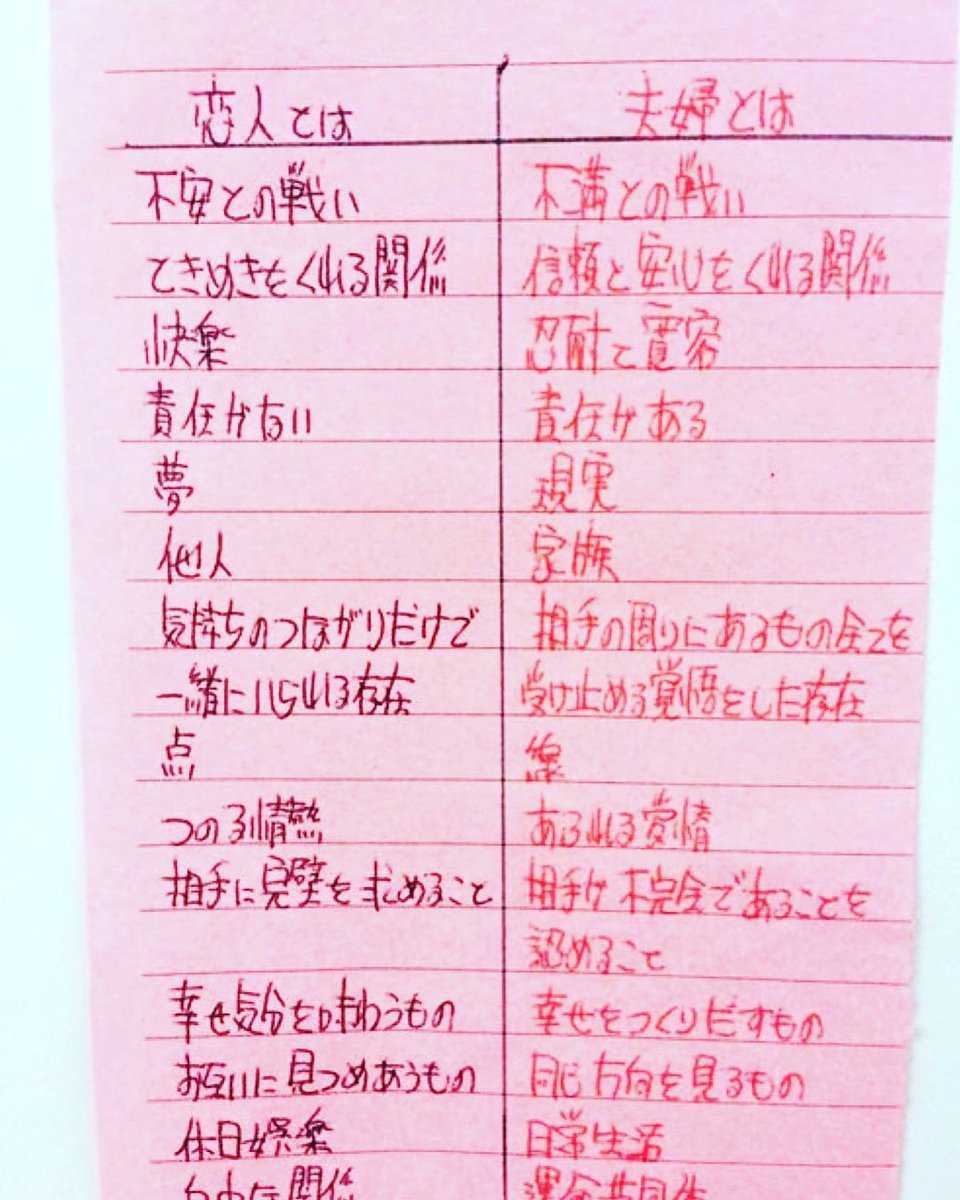 恋人とは 夫婦とは
不安との戦い 不満との戦い
ときめきをくれる関係 信頼と安心をくれる関係
快楽 忍耐と寛容
責任がない 責任がある
夢 現実
他人 家族
気持ちのつながりだけで 相手の周りにあるもの全てを
一緒にいられる存在 受け止める覚悟をした存在
点 線
つのる情熱 あふれる愛情
相手に完璧を求めること 相手が不完全であることを
認めること
幸せ気分を味わうもの 幸せをつくりだすもの
お互いに見つめあうもの 同じ方向を見るもの
休日娯楽 日常生活
自由な関係 運命共同体